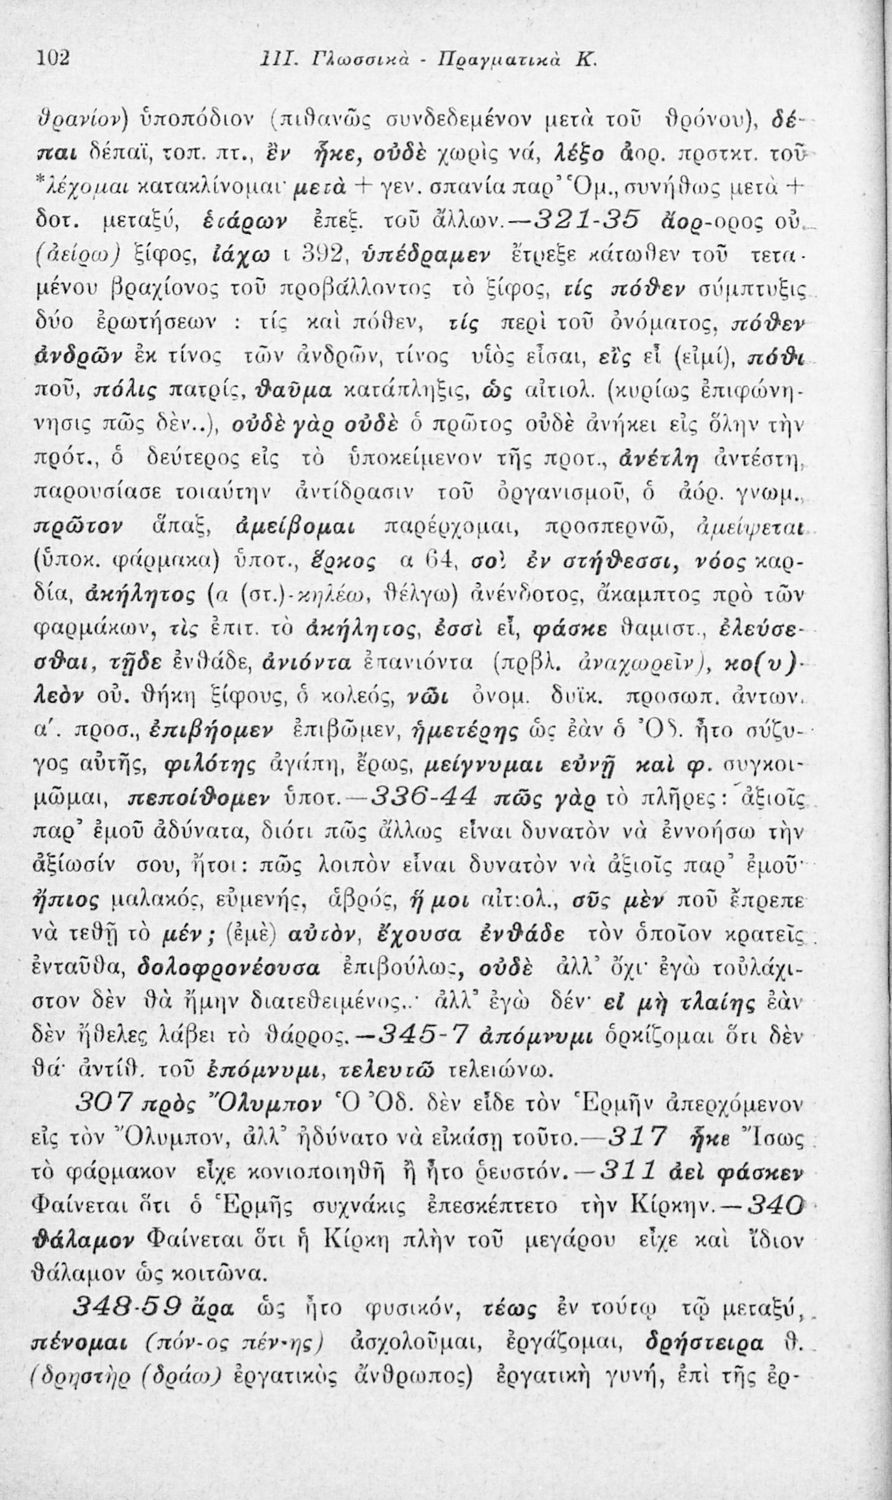 102 III. Γλωσσικὰ - Πραγματικὰ Κ.
θρανίον) ὑποπόδιον (πιθανῶς συνδεδεμένον μετὰ τοῦ θρόνου), δέ-
παι δέπαϊ, τοπ. πτ., ἓν ἧκε, οὐδὲ χωρὶς νά, λέξο ἀορ. προτκτ. τοῦ
*λέχομαι κατακλίνομαι· μετὰ + γεν. σπανία παρ’ Ὁμ., συνήθως μετὰ +
δοτ. μεταξύ, ἑτάρων ἐπεξ. τοῦ ἄλλων.—321-35 ἄορ-ορος οὐ.
(ἀείρω) ξίφος, ἰάχω ι 392, ὑπέδραμεν ἔτρεξε κάτωθεν τοῦ τετα-
μένου βραχίονος τοῦ προβάλλοντος τὸ ξίφος, τίς πόθεν σύμπτυξις
δύο ἐρωτήσεων : τίς καὶ πόθεν, τίς περὶ τοῦ ὀνόματος, πόθεν
ἀνδρῶν ἐκ τίνος τῶν ἀνδρῶν, τίνος υἱὸς εἶσαι, εἲς εἶ (εἰμί), πόθι
ποῦ, πόλις πατρίς, θαῦμα κατάπληξις, ὡς αἰτιολ. (κυρίως ἐπιφώνη-
νησις πῶς δὲν..), οὐδὲ γὰρ οὐδὲ ὁ πρῶτος οὐδὲ ἀνήκει εἰς ὅλην τὴν
πρότ., ὁ δεύτερος εἰς τὸ ὑποκείμενον τῆς προτ., ἀνέτλη ἀντέστη,
παρουσίασε τοιαύτην ἀντίδρασιν τοῦ ὀργανισμοῦ, ὁ ἀόρ. γνωμ.,
πρῶτον ἅπαξ, ἀμείβομαι παρέρχομαι, προσπερνῶ, ἀμείψεται
(ὑποκ. φάρμακα) ὑποτ., ἕρκος α 64, σοὶ ἐν στήθεσσι, νόος καρ-
δία, ἀκήλητος (α (στ.)-κηλέω, θέλγω) ἀνένδοτος, ἄκαμπτος πρὸ τῶν
φαρμάκων, τὶς ἐπιτ. τὸ ἀκήλητος, ἐσσὶ εἶ, φάσκε θαμιστ., ἐλεύσε-
σθαι, τῇδε ἐνθάδε, ἀνιόντα ἐπανιόντα (πρβλ. ἀναχωρεῖν), κο(υ)-
λεὸν οὐ. θήκη ξίφους, ὁ κολεός, νῶι ὀνομ. δυϊκ. προσωπ. ἀντων.
α΄. προσ., ἐπιβήομεν ἐπιβῶμεν, ἡμετέρης ὡς ἐὰν ὁ Ὀδ. ἦτο σύζυ-
γος αὐτῆς, φιλότης ἀγάπη, ἔρως, μείγνυμαι εὐνῇ καὶ φ. συγκοι-
μῶμαι, πεποίθομεν ὑποτ.—336-44 πῶς γὰρ τὸ πλῆρες: ἀξιοῖς
παρ’ ἐμοῦ ἀδύνατα, διότι πῶς ἄλλως εἶναι δυνατὸν νὰ ἐννοήσω τὴν
ἀξίωσίν σου, ἤτοι: πῶς λοιπὸν εἶναι δυνατὸν νὰ ἀξιοῖς παρ’ ἐμοῦ·
ἤπιος μαλακός, εὐμενής, ἁβρός, ἥ μοι αἰτιολ., σῦς μὲν ποῦ ἔπρεπε
νὰ τεθῇ τὸ μέν; (ἐμὲ) αὐτὸν, ἔχουσα ἐνθάδε τὸν ὁποῖον κρατεῖς
ἐνταῦθα, δολοφρονέουσα ἐπιβούλως, οὐδὲ ἀλλ’ ὄχι· ἐγὼ τοὐλάχι-
στον δὲν θὰ ἤμην διατεθειμένος..· ἀλλ’ ἐγὼ δέν· εἰ μὴ τλαίης ἐὰν
δὲν ἤθελες λάβει τὸ θάρρος.—345-7 ἀπόμνυμι ὁρκίζομαι ὅτι δὲν
θά· ἀντίθ. τοῦ ἐπόμνυμι, τελευτῶ τελειώνω.
307 πρὸς Ὄλυμπον Ὁ Ὀδ. δὲν εἶδε τὸν Ἑρμῆν ἀπερχόμενον
εἰς τὸν Ὄλυμπον, ἀλλ’ ἠδύνατο νὰ εἰκάσῃ τοῦτο.—317 ἧκε Ἴσως
τὸ φάρμακον εἶχε κονιοποιηθῆ ἢ ἦτο ῥευστόν.—311 ἀεὶ φάσκεν
Φαίνεται ὅτι ὁ Ἑρμῆς συχνάκις ἐπεσκέπτετο τὴν Κίρκην.—340
θάλαμον Φαίνεται ὅτι ἡ Κίρκη πλὴν τοῦ μεγάρου εἶχε καὶ ἴδιον
θάλαμον ὡς κοιτῶνα.
348-59 ἄρα ὡς ἦτο φυσικόν, τέως ἐν τούτῳ τῷ μεταξύ,
πένομαι (πόν-ος πέν-ης) ἀσχολοῦμαι, ἐργάζομαι, δρήστειρα θ.
(δρηστὴρ (δράω) ἐργατικὸς ἄνθρωπος) ἐργατικὴ γυνή, ἐπὶ τῆς ἐρ-